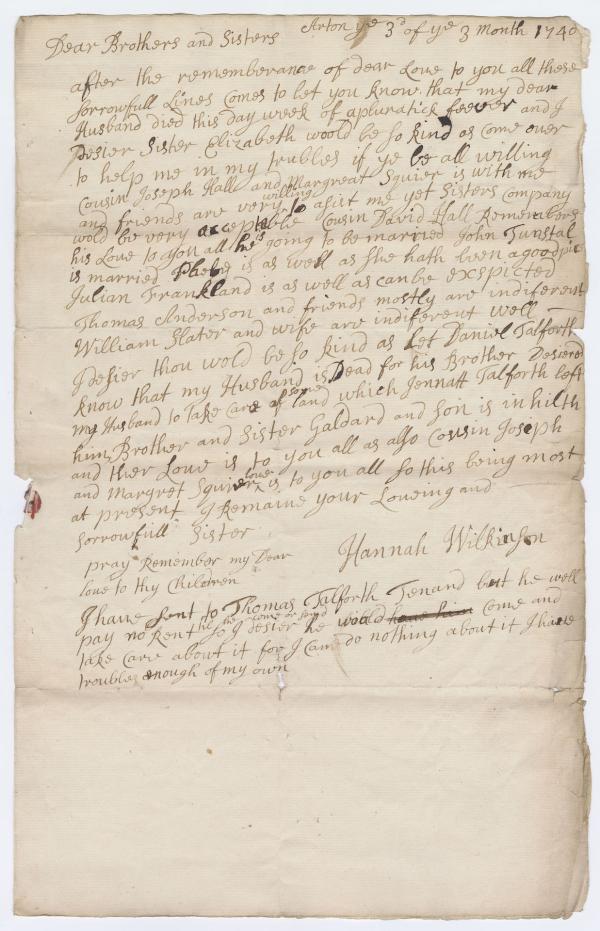 Arton ye 3d of ye 3 Month 1740
Dear Brothers and Sisters
after the rememberance of dear Love to you all these
sorrowfull Lines Comes to let you know that my dear
Husband died this day week of a pluratick feever and I
Desier Sister Elizabeth woold be so kind as come over
to help me in my trubles if ye be all willing
Cousin Joseph Hall and Margreat Squier is with me
and friends are very willing to asist me yet Sisters Company
wold be very acceptable Cousin David Hall Remembers
his Love to you all he is going to be married John Tunstal
is married Phebe is as well as she hath been a good
Julian Frankland is as well as can be exspicted
Thomas Anderson and friends mostly are indiferent
William Slater and wife are indiferent well
I desier thou wold be so kind as Let Daniel Talforth
know that my Husband is Dead for his Brother Desiered
my Husband to Take Care of some land which Jennatt Talforth left
him, Brother and Sister Galdard and son is in hilth
and ther Love is to you all as also Cousin Joseph
and Margret Squier love is to you all so this being most
at present I Remaine your Loveing and
sorrowfull Sister
Hannah Wilkinson
pray Remember my Dear
love to thy Children
I have sent to Thomas Talforth Tenand but he well
pay no Rent till he come or send so I desier he would have him come and
take care about it for I can do nothing about it I have
trouble enough of my own